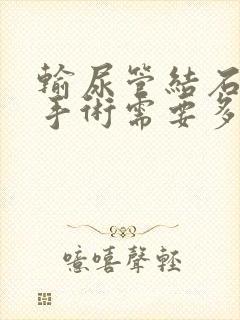 輸尿管結石
手術需要多
噫嘻聲輕